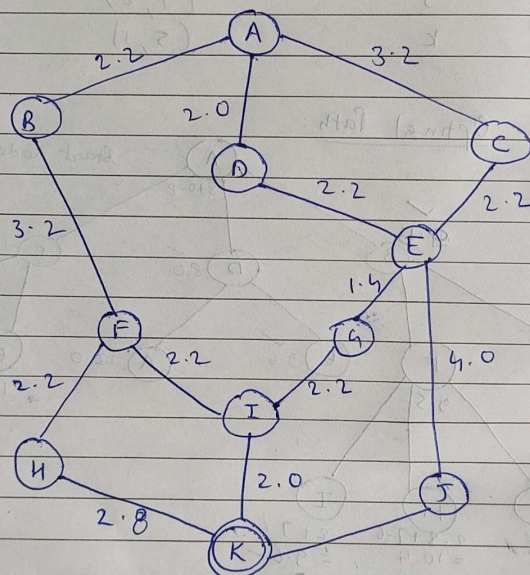 A
2.2
3.2
B
2.0
C
D
2.2
2.2
E
3.2
1.4
F
G
2.2
4.0
2.2
2.2
I
H
2.0
J
2.8
K